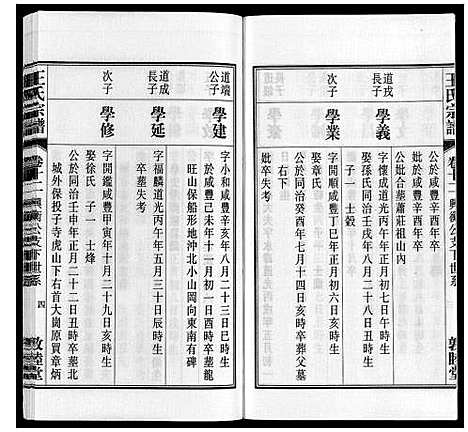 王氏宗譜
卷十二
敦睦堂
公於咸豐辛酉年卒
妣於咸豐辛酉年卒
公妣合墓蕭莊祖山內
道戎
長子
學義
字懷成道光丙午年正月初七日辰時生
娶孫氏同治壬戌年八月二十八日亥時生
子一 士穀
次子
學業
字開順咸豐丁巳年正月初六日亥時生
娶章氏
公於同治癸酉年七月十四日亥時卒葬父墓
右下
妣卒葬失考
道端
公子
學建
字小和咸豐辛亥年八月二十三日巳時生
於咸豐己未年十一月初一日酉時卒墓龍
旺山保船形地沖北小山岡向東南有碑
道成
長子
學延
字福麟道光丙午年五月三十日辰時生
卒墓失考
次子
學修
字開鑑咸豐甲寅年十月二十九日亥時生
娶徐氏 子一 士烽
公於同治壬申年正月二十二日丑時卒墓北
城外保投子寺虎山下右首大崗原買章炳
王氏宗譜
卷十二
四
敦睦堂